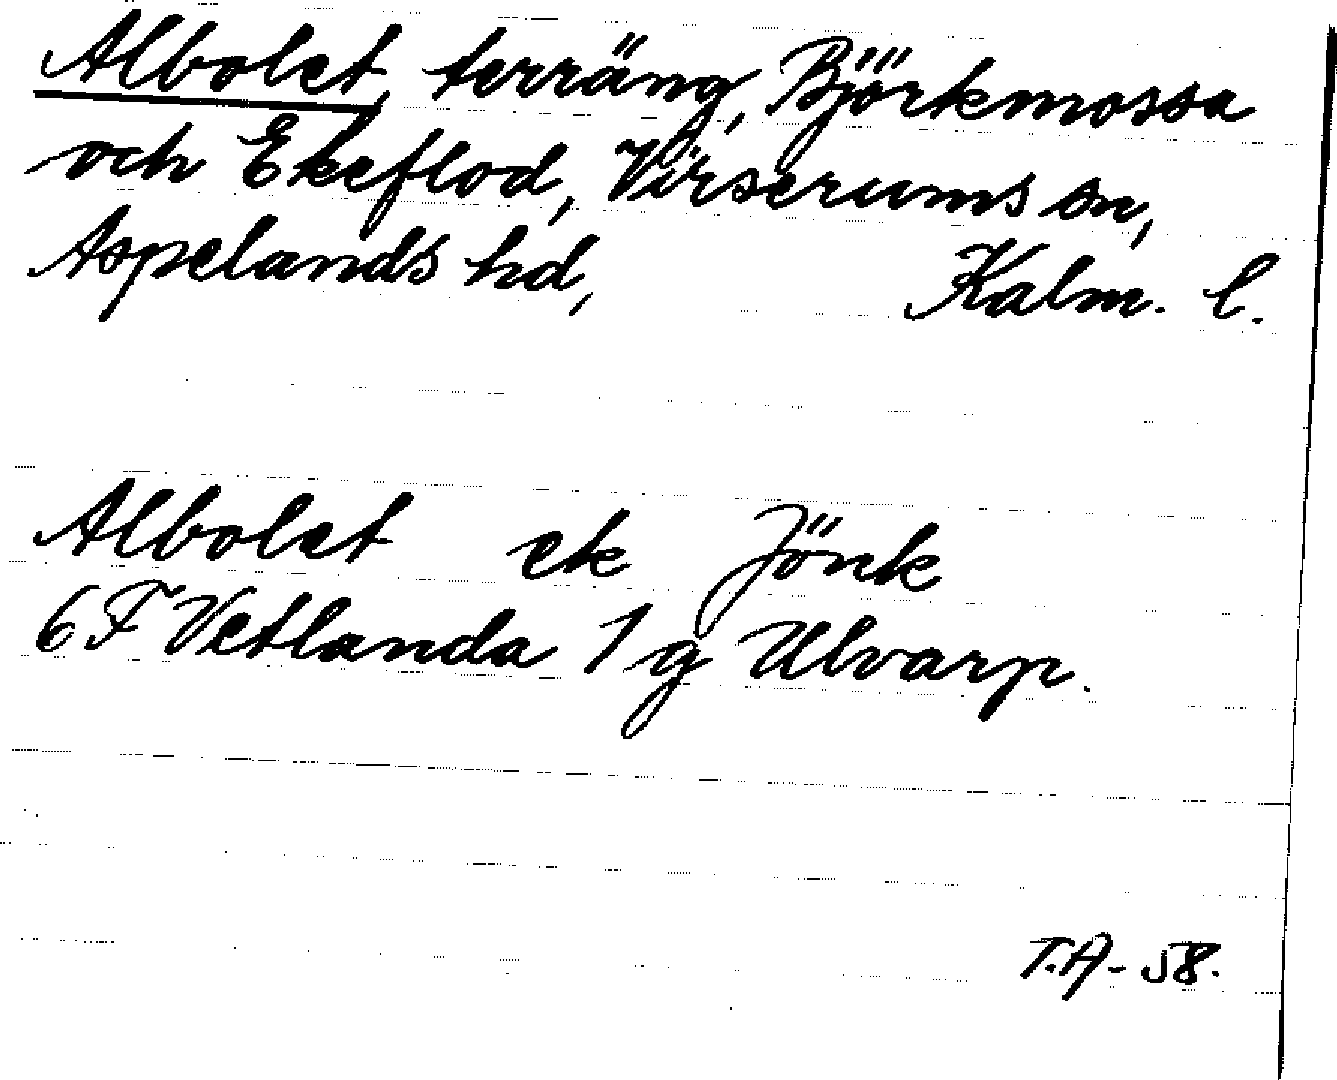 Albolet, terräng, Björkmossa
och Ekeflod, Virserums sn,
Aspelands hd, Kalm. l.
Albolet ek Jönk
6 F Vetlanda 1 g Ulvarp.
T.A-58.